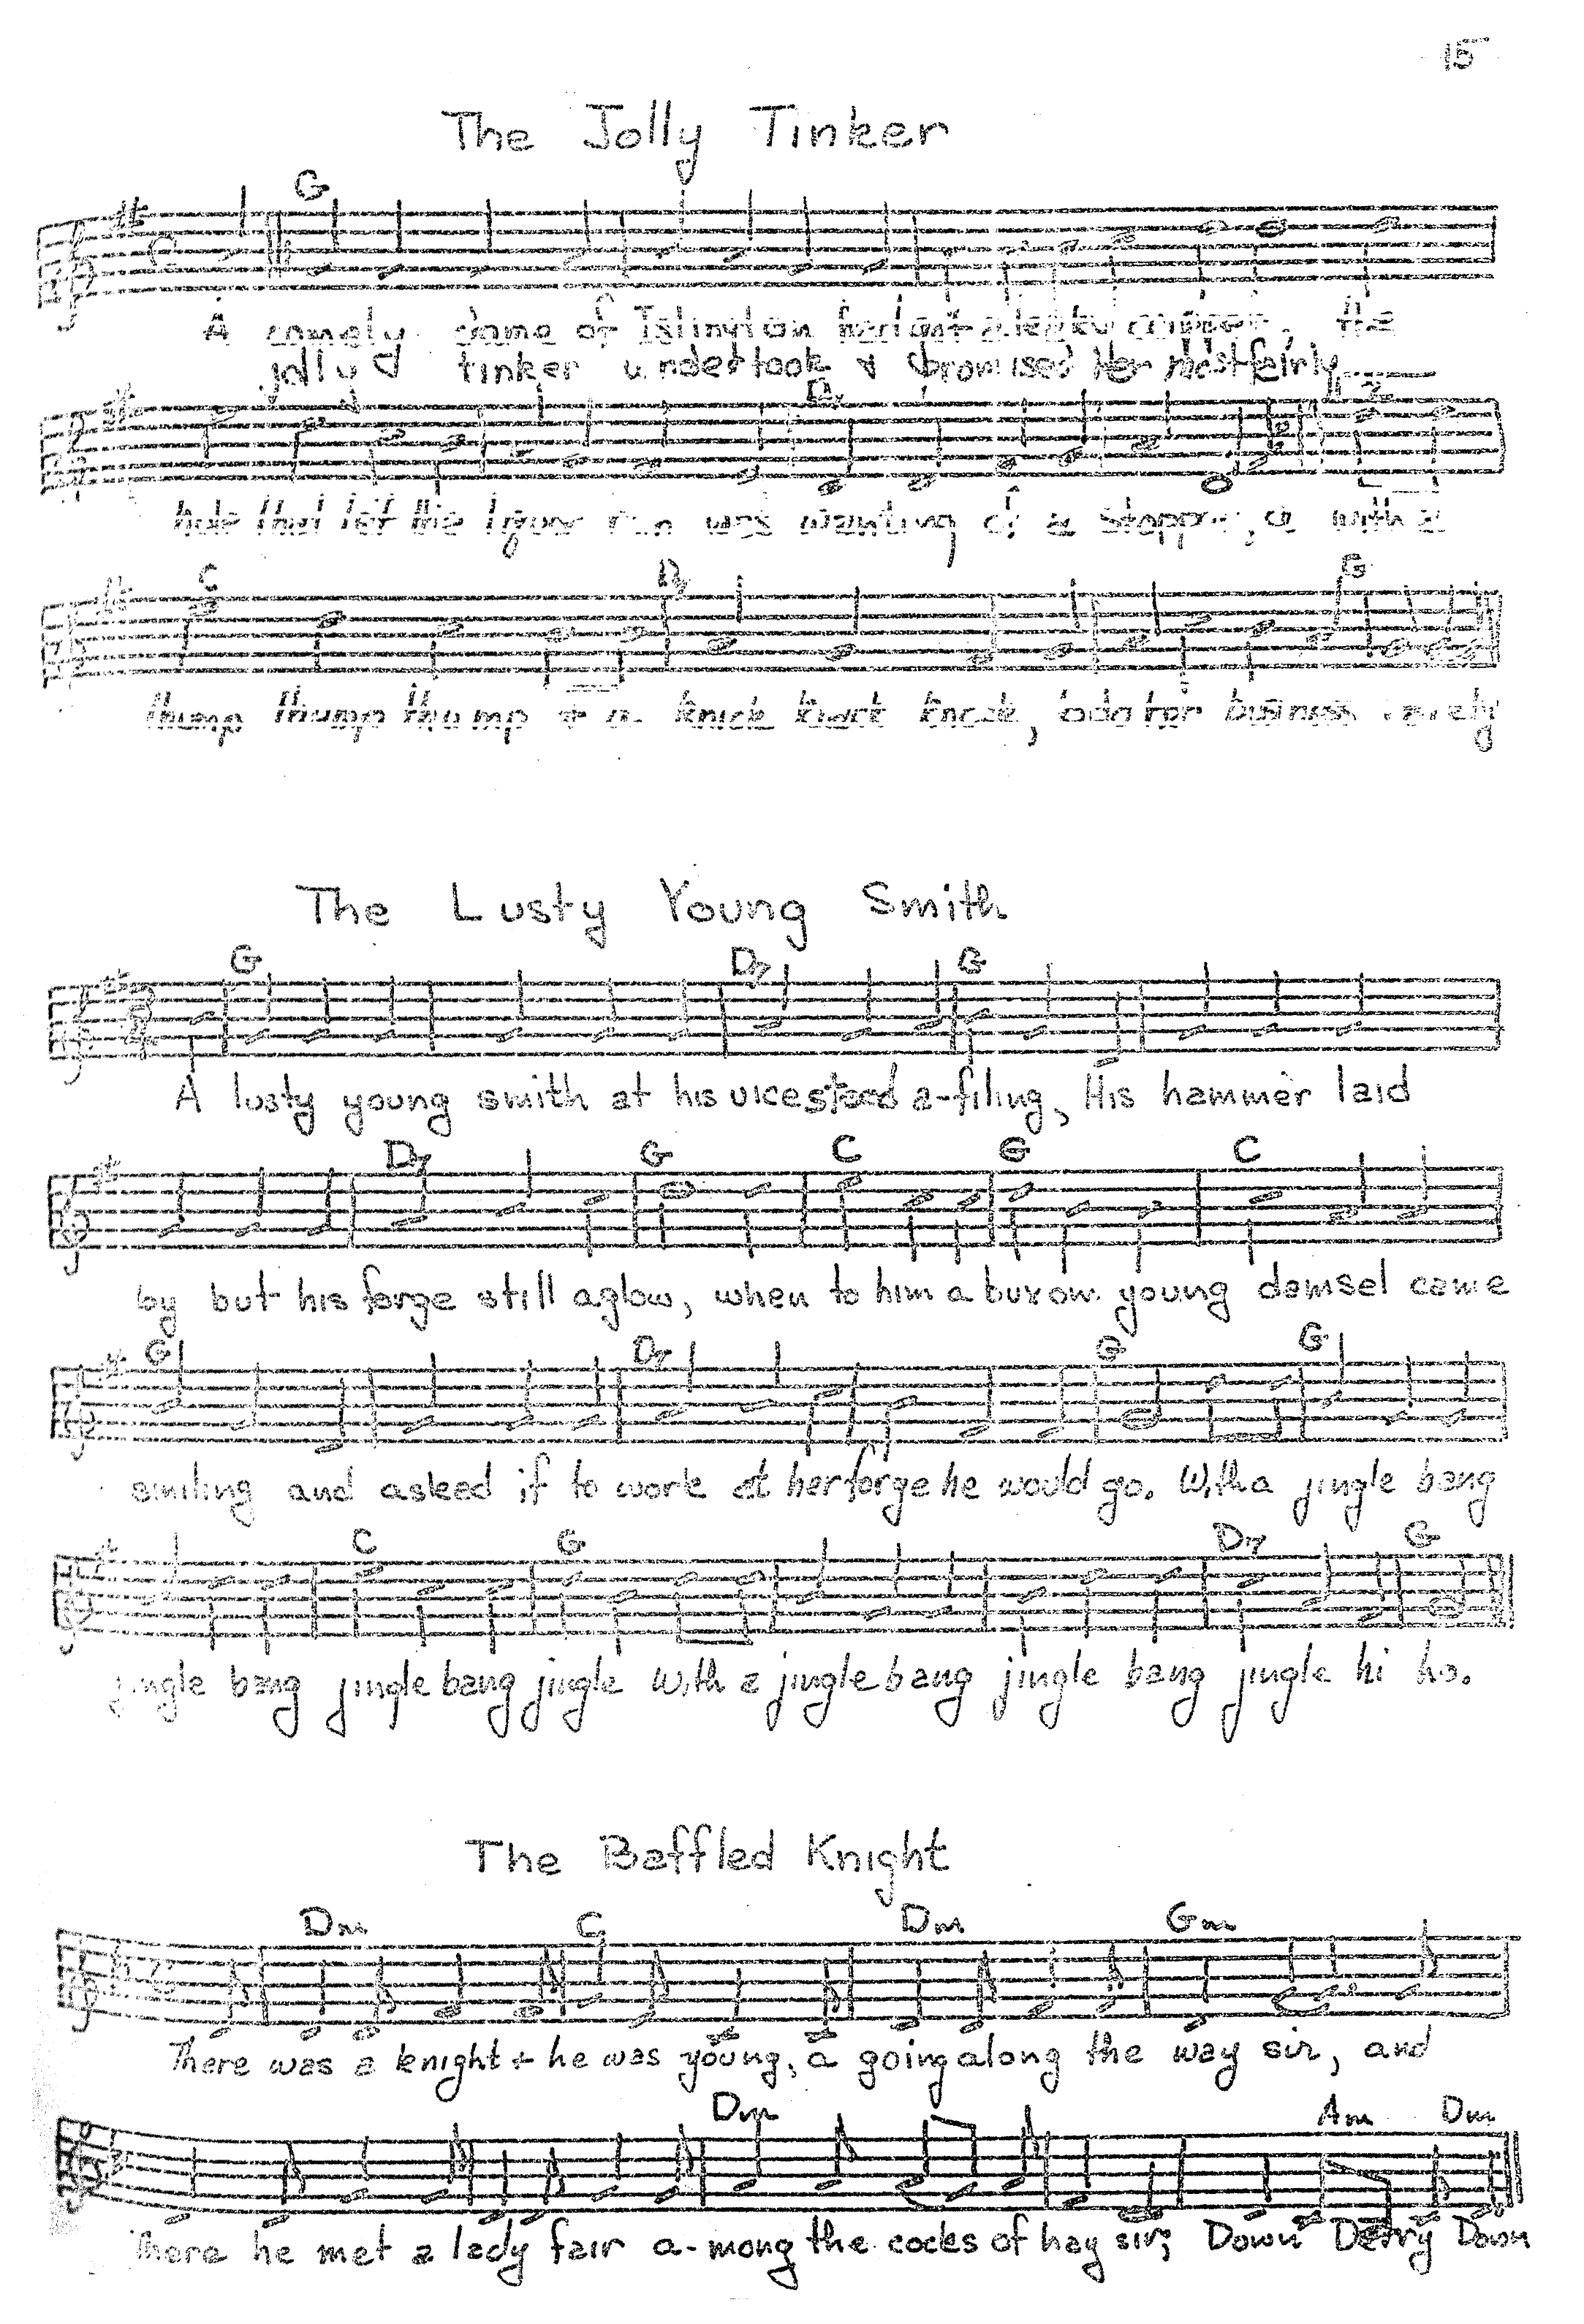 15
The Jolly Tinker
G
A comely dame of Islington had got a leaky copper, the
jolly tinker undertook & promised her most fairly
D7
hole that let the liquor run was wanting of a stopper, with a
C D7 G
thump thump thump + a knick knack knock, to do her business rarely
The Lusty Young Smith
G D7 G
A lusty young smith at his vice stood a-filing, His hammer laid
D7 G C G C
by but his forge still aglow, when to him a buxom young damsel came
G D7 G G
smiling and asked if to work at her forge he would go. With a jingle bang
C G D7 G
jingle bang jingle bang jingle With a jingle bang jingle bang jingle hi ho.
The Baffled Knight
Dm C Dm Gm
There was a knight + he was young, a going along the way sir, and
Dm Am Dm
there he met a lady fair a-mong the cocks of hay sir; Down Derry Down